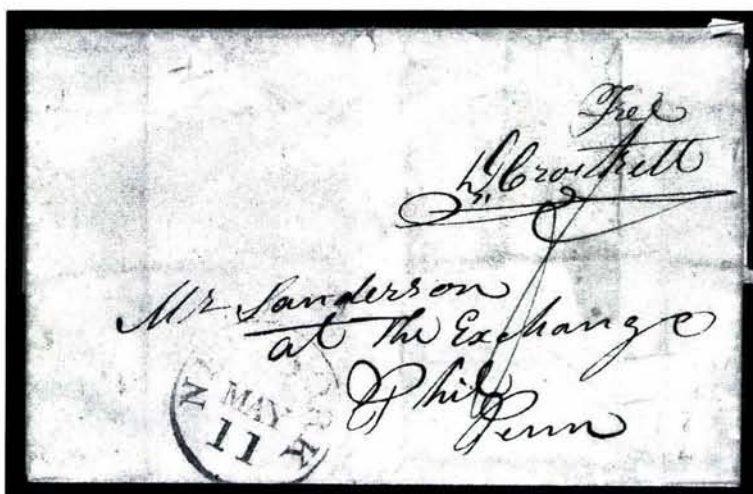 Free
D. Crockett
Mr Sanderson
at the Exchange
Phil
Penn
NEW YORK
MAY
11